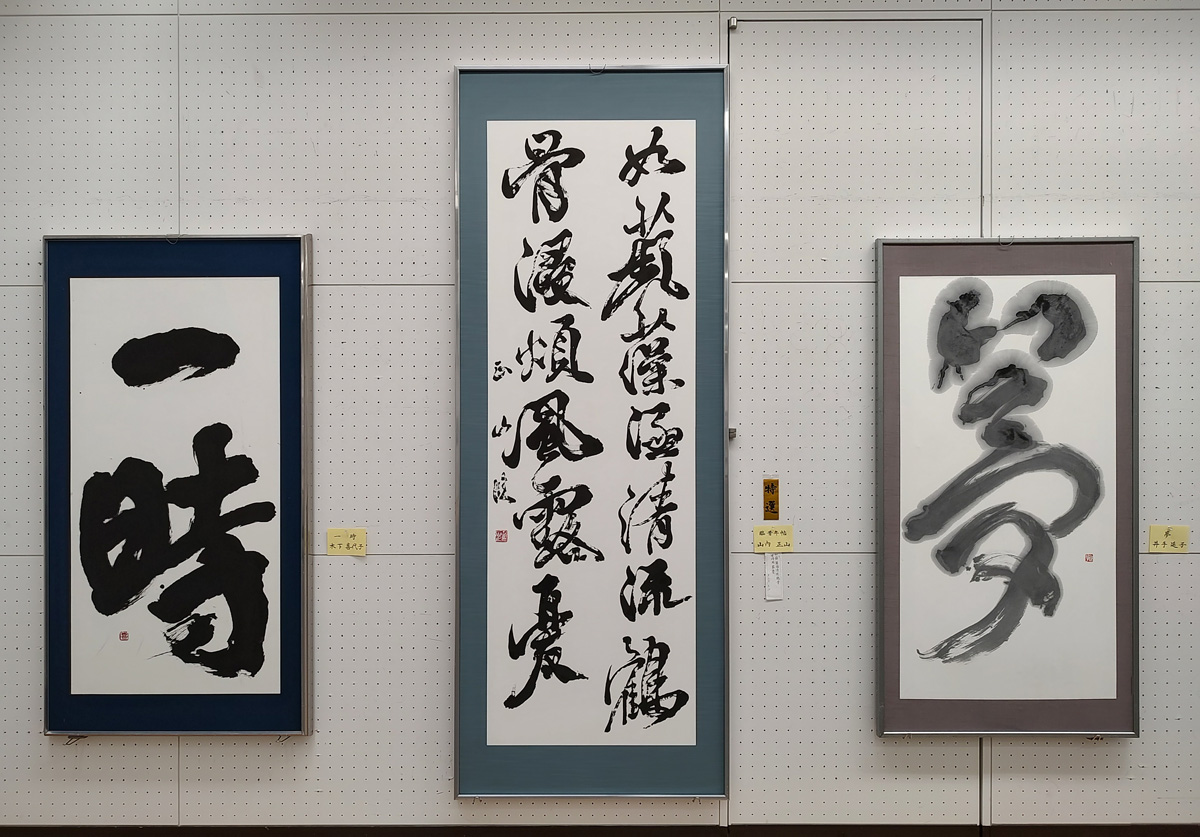 一時
一 時
木下喜代子
如蘋藻涵清流鶴
骨煩風露憂
正山臨
特選
山内 正山
夢
夢